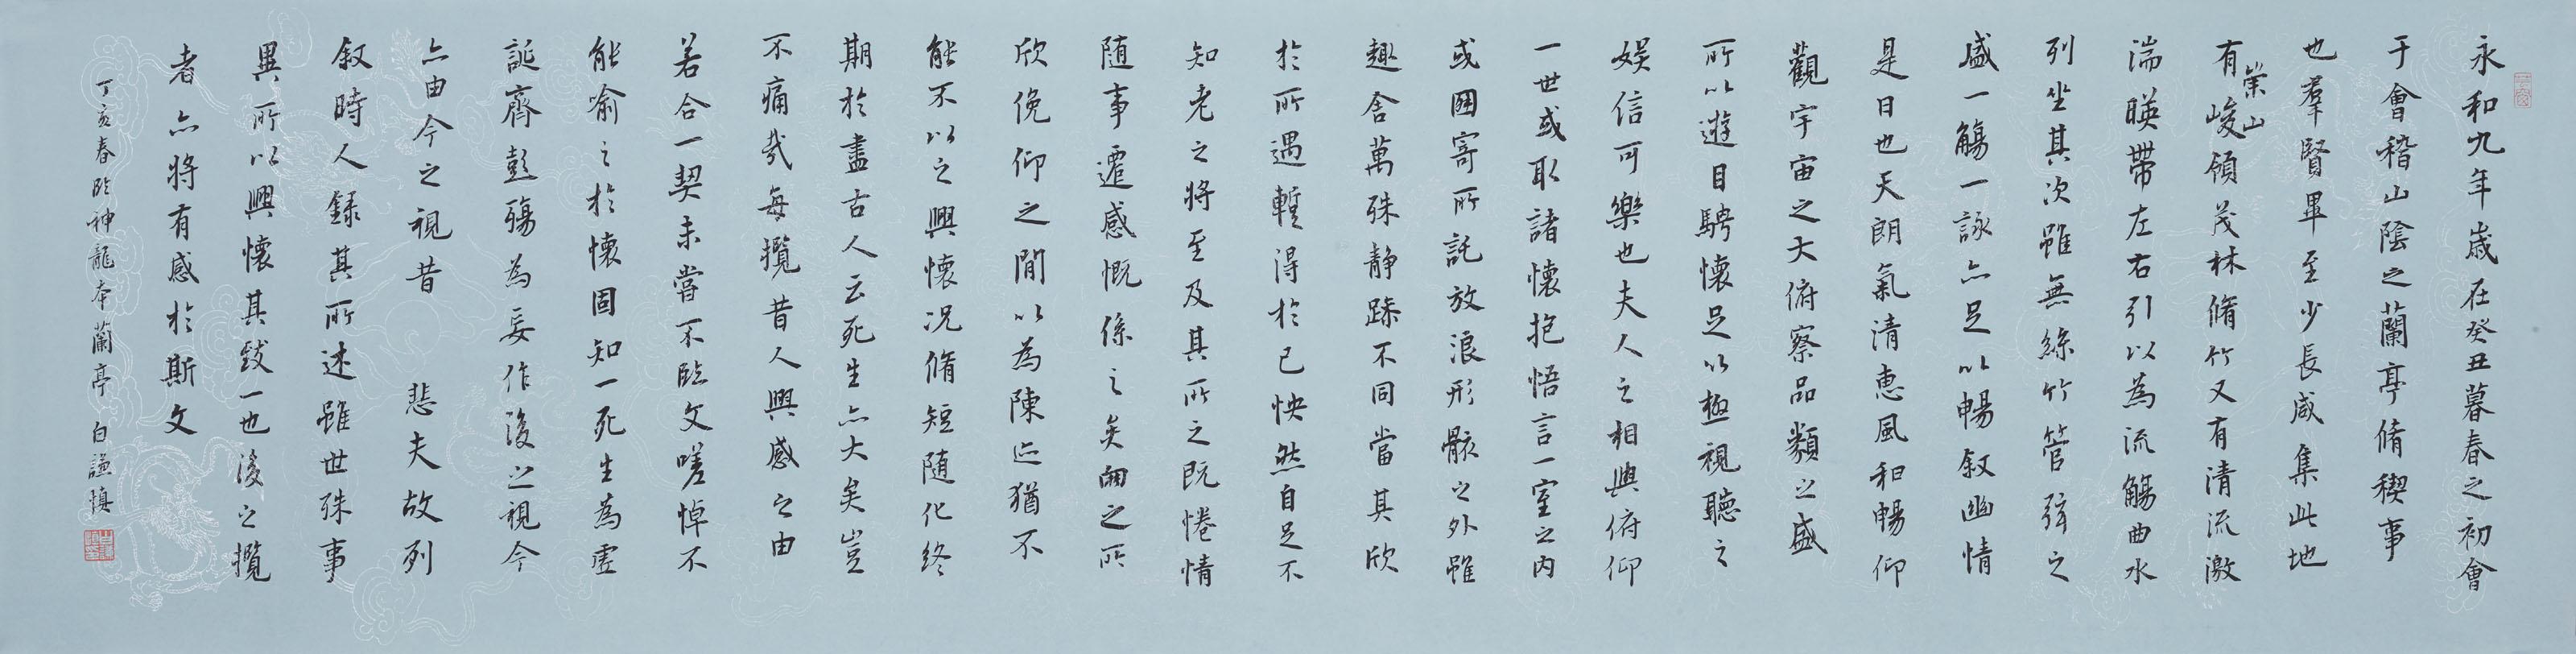 永和九年歲在癸丑暮春之初會
于會稽山陰之蘭亭脩稧事
也羣賢畢至少長咸集此地
有崇山峻領茂林脩竹又有清流激
湍暎帶左右引以為流觴曲水
列坐其次雖無絲竹管弦之
盛一觴一詠亦足以暢叙幽情
是日也天朗氣清惠風和暢仰
觀宇宙之大俯察品類之盛
所以遊目騁懷足以極視聽之
娛信可樂也夫人之相與俯仰
一世或取諸懷抱悟言一室之內
或因寄所託放浪形骸之外雖
趣舍萬殊静躁不同當其欣
於所遇暫得於己怏然自足不
知老之將至及其所之既惓情
随事遷感慨係之矣向之所
欣俛仰之間以為陳迹猶不
能不以之興懷況脩短随化終
期於盡古人云死生亦大矣豈
不痛哉每攬昔人興感之由
若合一契未嘗不臨文嗟悼不
能喻之於懷固知一死生為虛
誕齊彭殤為妄作後之視今
亦由今之視昔悲夫故列
叙時人錄其所述雖世殊事
異所以興懷其致一也後之攬
者亦將有感於斯文
丁亥春臨神龍本蘭亭 白謙慎